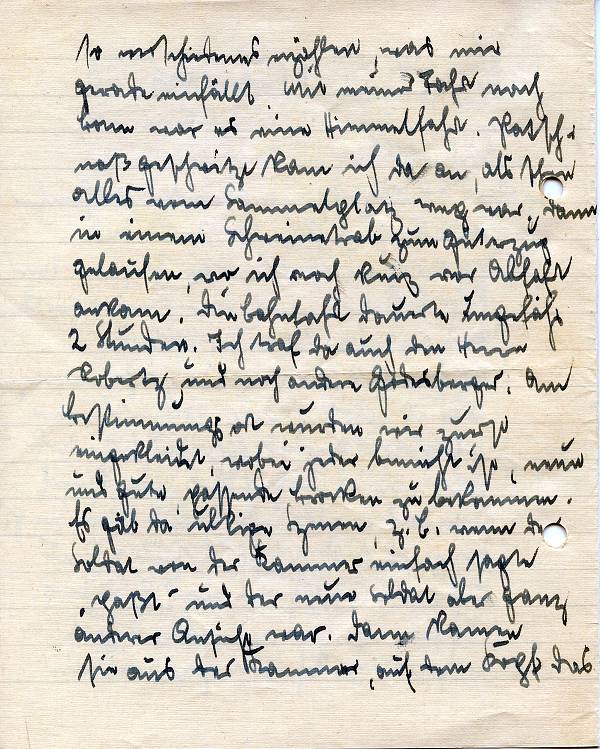 so verschiedenes erzählen, was mir
gerade einfällt. Mit meiner Fahrt nach
Bonn war es eine Himmelfahrt. Patsch-
naß geschwitzt kam ich da an, als schon
alles vom Sammelplatz weg war, dann
in einem Schweinetrab zum Güterzug
gelaufen, wo ich noch kurz vor Abfahrt
ankam. Die Bahnfahrt dauerte Ungefähr
2 Stunden. Ich traf da auch den Herrn
Robertz, und noch andere Godesberger. Am
Bestimmungsort wurden wir zuerst
eingekleidet, wobei jeder bemüht ist, neue
und gute, passende Brocken zu bekommen.
Es gab da ulkige Szenen, z.B. wenn der
Soldat von der Kammer einfach sagte
„paßt“ und der neue Soldat aber ganz
anderer Ansicht war. Dann kamen
sie aus der Kammer, auf dem Kopf das